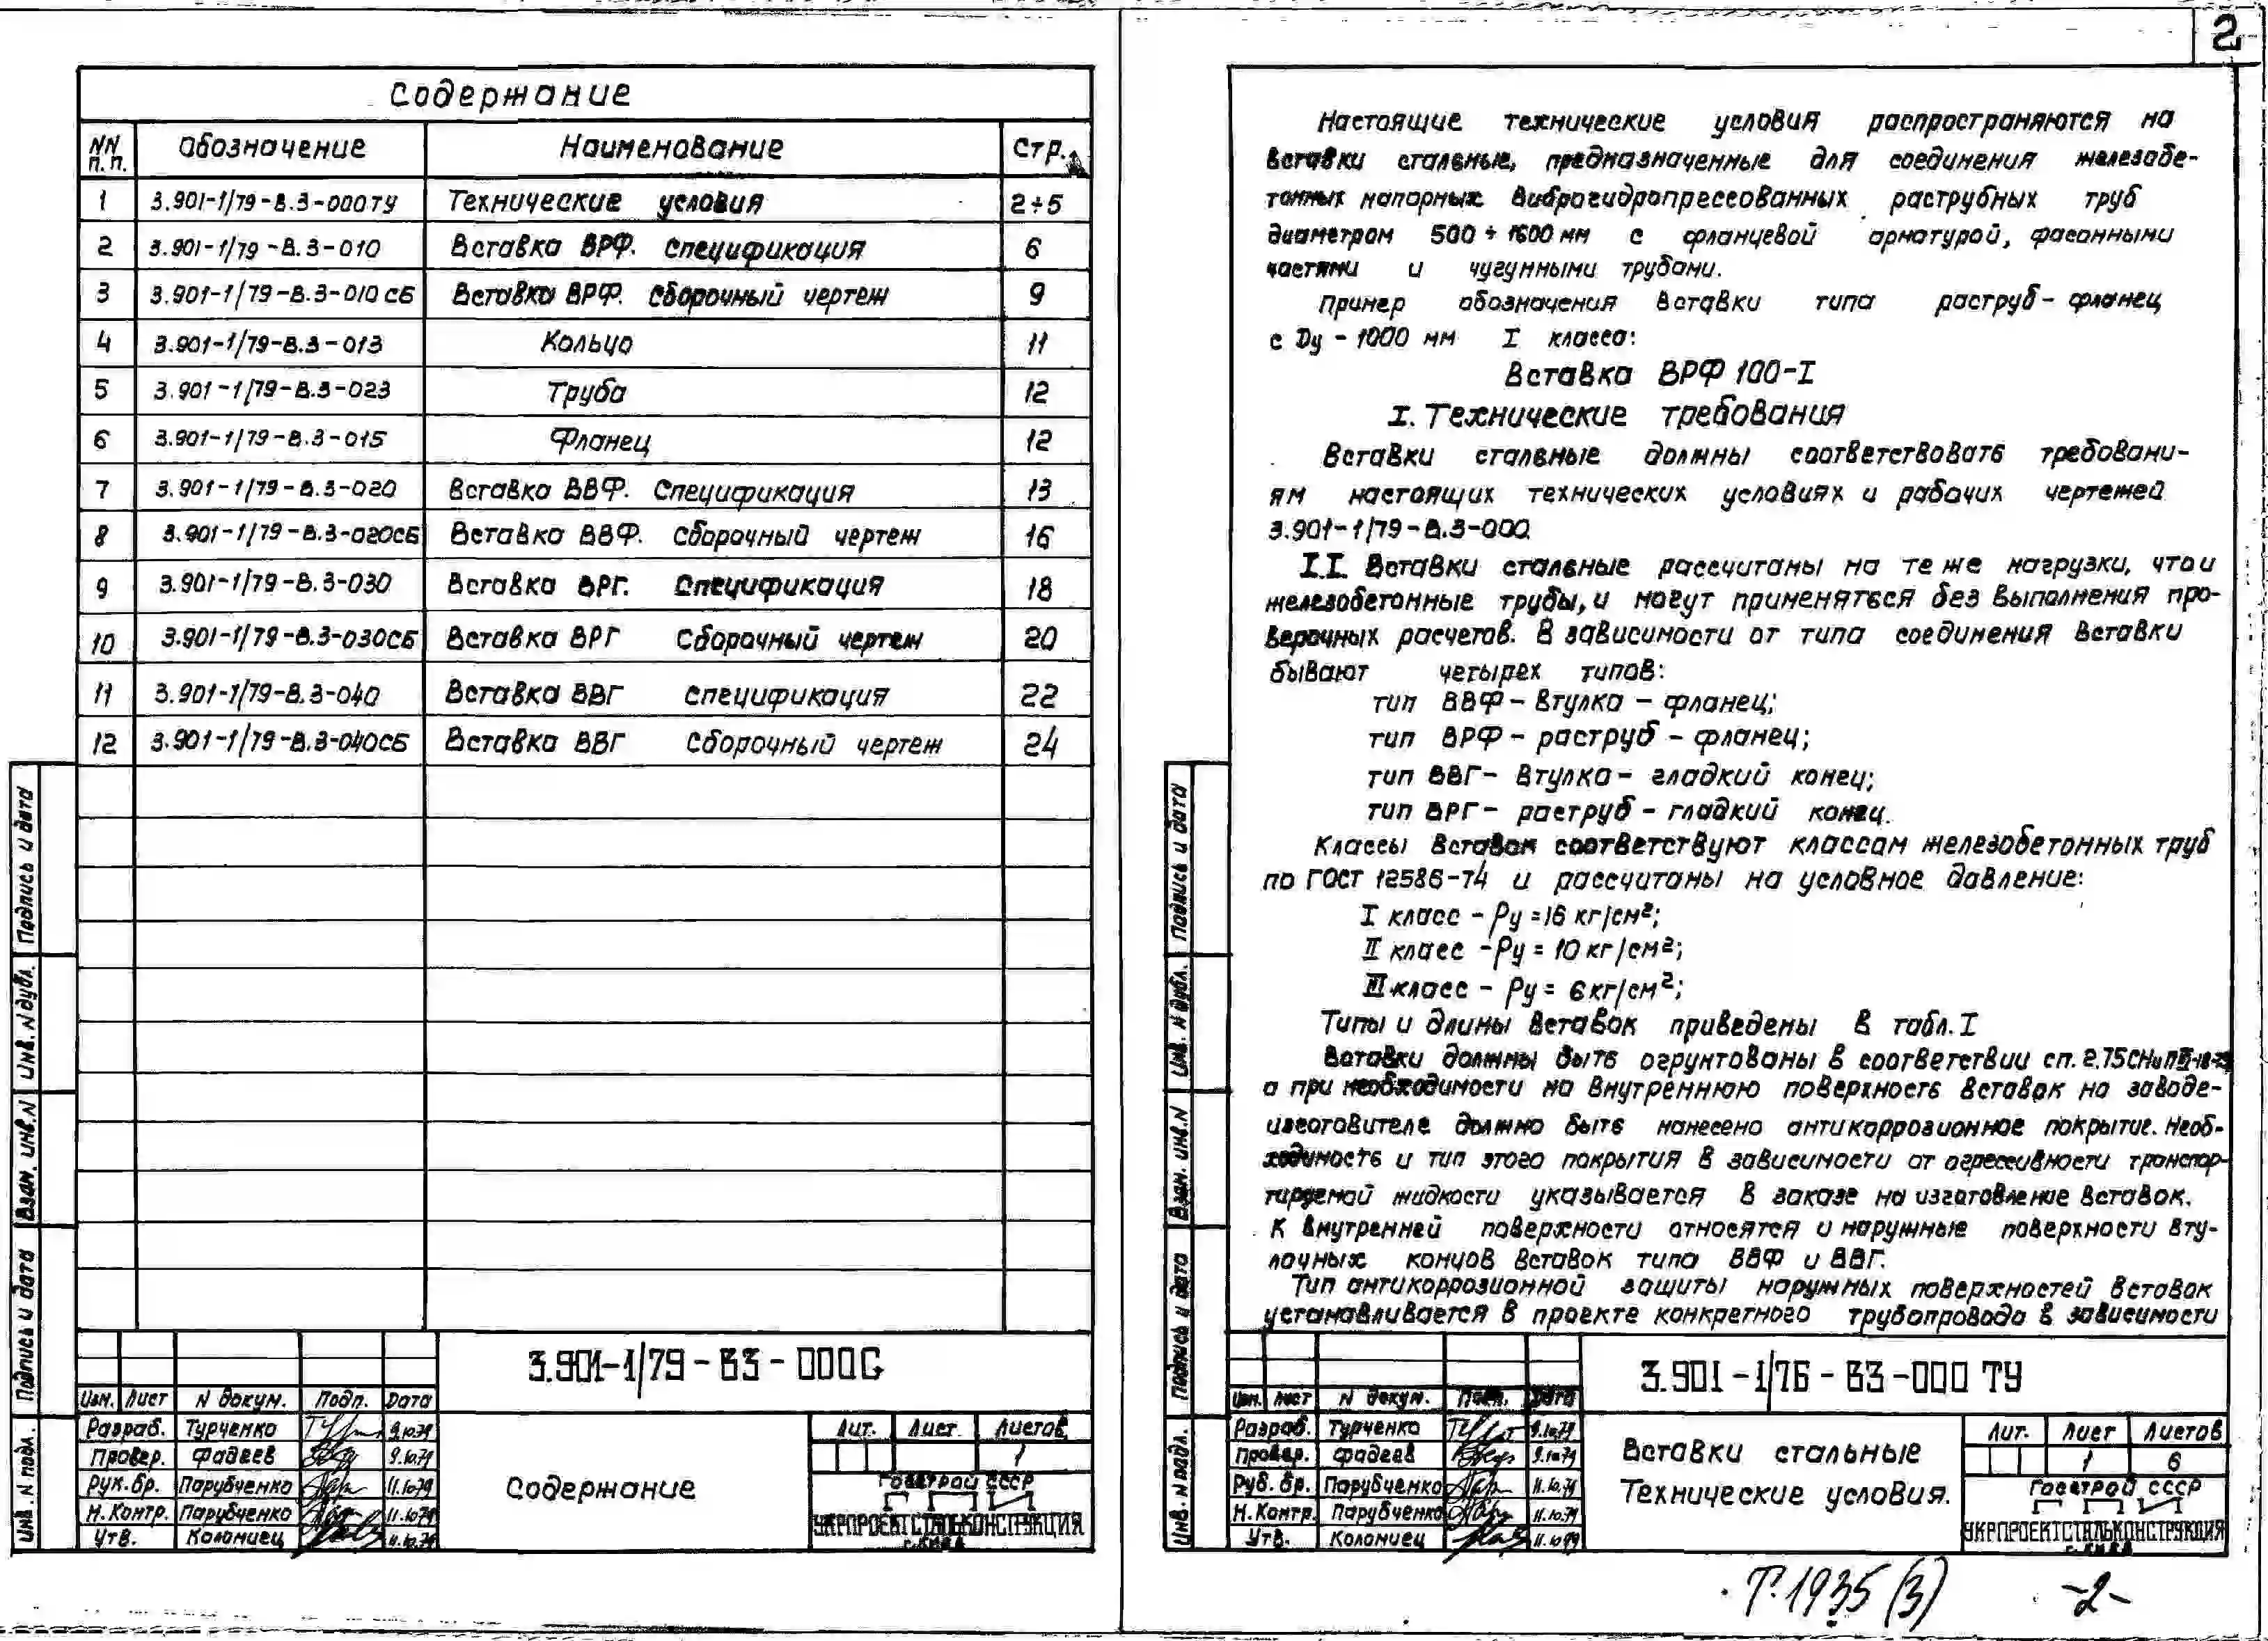 2
Содержание
NN п.п. Обозначение Наименование Стр.
1 3.901-1/79-В.3-000ТУ Технические условия 2÷5
2 3.901-1/79-В.3-010 Вставка ВРФ. Спецификация 6
3 3.901-1/79-В.3-010СБ Вставка ВРФ. Сборочный чертеж 9
4 3.901-1/79-В.3-013 Кольцо 11
5 3.901-1/79-В.3-023 Труба 12
6 3.901-1/79-В.3-015 Фланец 12
7 3.901-1/79-В.3-020 Вставка ВВФ. Спецификация 13
8 3.901-1/79-В.3-020СБ Вставка ВВФ. Сборочный чертеж 16
9 3.901-1/79-В.3-030 Вставка ВРГ. Спецификация 18
10 3.901-1/79-В.3-030СБ Вставка ВРГ Сборочный чертеж 20
11 3.901-1/79-В.3-040 Вставка ВВГ спецификация 22
12 3.901-1/79-В.3-040СБ Вставка ВВГ Сборочный чертеж 24
Подпись и дата
Инв. N дубл.
Взам. инв.N
Подпись и дата
Инв. N подл.
3.901-1/79-В3-000С
Изм. Лист N докум. Подп. Дата
Разраб. Турченко 9.10.79
Провер. Фадеев 9.10.79
Рук. бр. Парубченко 11.10.79
Н.Контр. Парубченко 11.10.79
Утв. Коломиец 11.10.79
Содержание
Лит. Лист Листов
1
Госстрой СССР
УКРПРОЕКТСТАЛЬКОНСТРУКЦИЯ
г. Киев
Настоящие технические условия распространяются на
вставки стальные, предназначенные для соединения железобе-
тонных напорных виброгидропрессованных раструбных труб
диаметром 500÷1600 мм с фланцевой арматурой, фасонными
частями и чугунными трубами.
Пример обозначения вставки типа раструб-фланец
с Ду-1000 мм I класса:
Вставка ВРФ 100-I
I. Технические требования
Вставки стальные должны соответствовать требовани-
ям настоящих технических условиях и рабочих чертежей
3.901-1/79-В.3-000
I.I. Вставки стальные рассчитаны на те же нагрузки, что и
железобетонные трубы, и могут применяться без выполнения про-
верочных расчетов. В зависимости от типа соединения вставки
бывают четырех типов:
тип ВВФ-втулка-фланец;
тип ВРФ-раструб-фланец;
тип ВВГ-втулка-гладкий конец;
тип ВРГ-раструб-гладкий конец.
Классы вставок соответствуют классам железобетонных труб
по ГОСТ 12586-74 и рассчитаны на условное давление:
I класс - Ру=16 кг/см²;
II класс - Ру=10 кг/см²;
III класс - Ру=6 кг/см²;
Типы и длины вставок приведены в табл. I
Вставки должны быть огрунтованы в соответствии с п. 2.75 СНиП
а при необходимости на внутреннюю поверхность вставок на заводе-
изготовителе должно быть нанесено антикоррозионное покрытие. Необ-
ходимость и тип этого покрытия в зависимости от агрессивности транспор-
тируемой жидкости указывается в заказе на изготовление вставок.
К внутренней поверхности относятся и наружные поверхности вту-
лочных концов вставок типа ВВФ и ВВГ.
Тип антикоррозионной защиты наружных поверхностей вставок
устанавливается в проекте конкретного трубопровода в зависимости
Подпись и дата
Инв. N дубл.
Взам. инв.N
Подпись и дата
Инв. N подл.
3.901-1/76-В3-000 ТУ
Изм. Лист N докум. Подп. Дата
Разраб. Турченко 9.10.79
Провер. Фадеев 9.10.79
Руб. бр. Парубченко 11.10.79
Н.Контр. Парубченко 11.10.79
Утв. Коломиец 11.10.79
Вставки стальные
Технические условия.
Лит. Лист Листов
1 6
Госстрой СССР
УКРПРОЕКТСТАЛЬКОНСТРУКЦИЯ
г. Киев
Т.1935(3) -2-